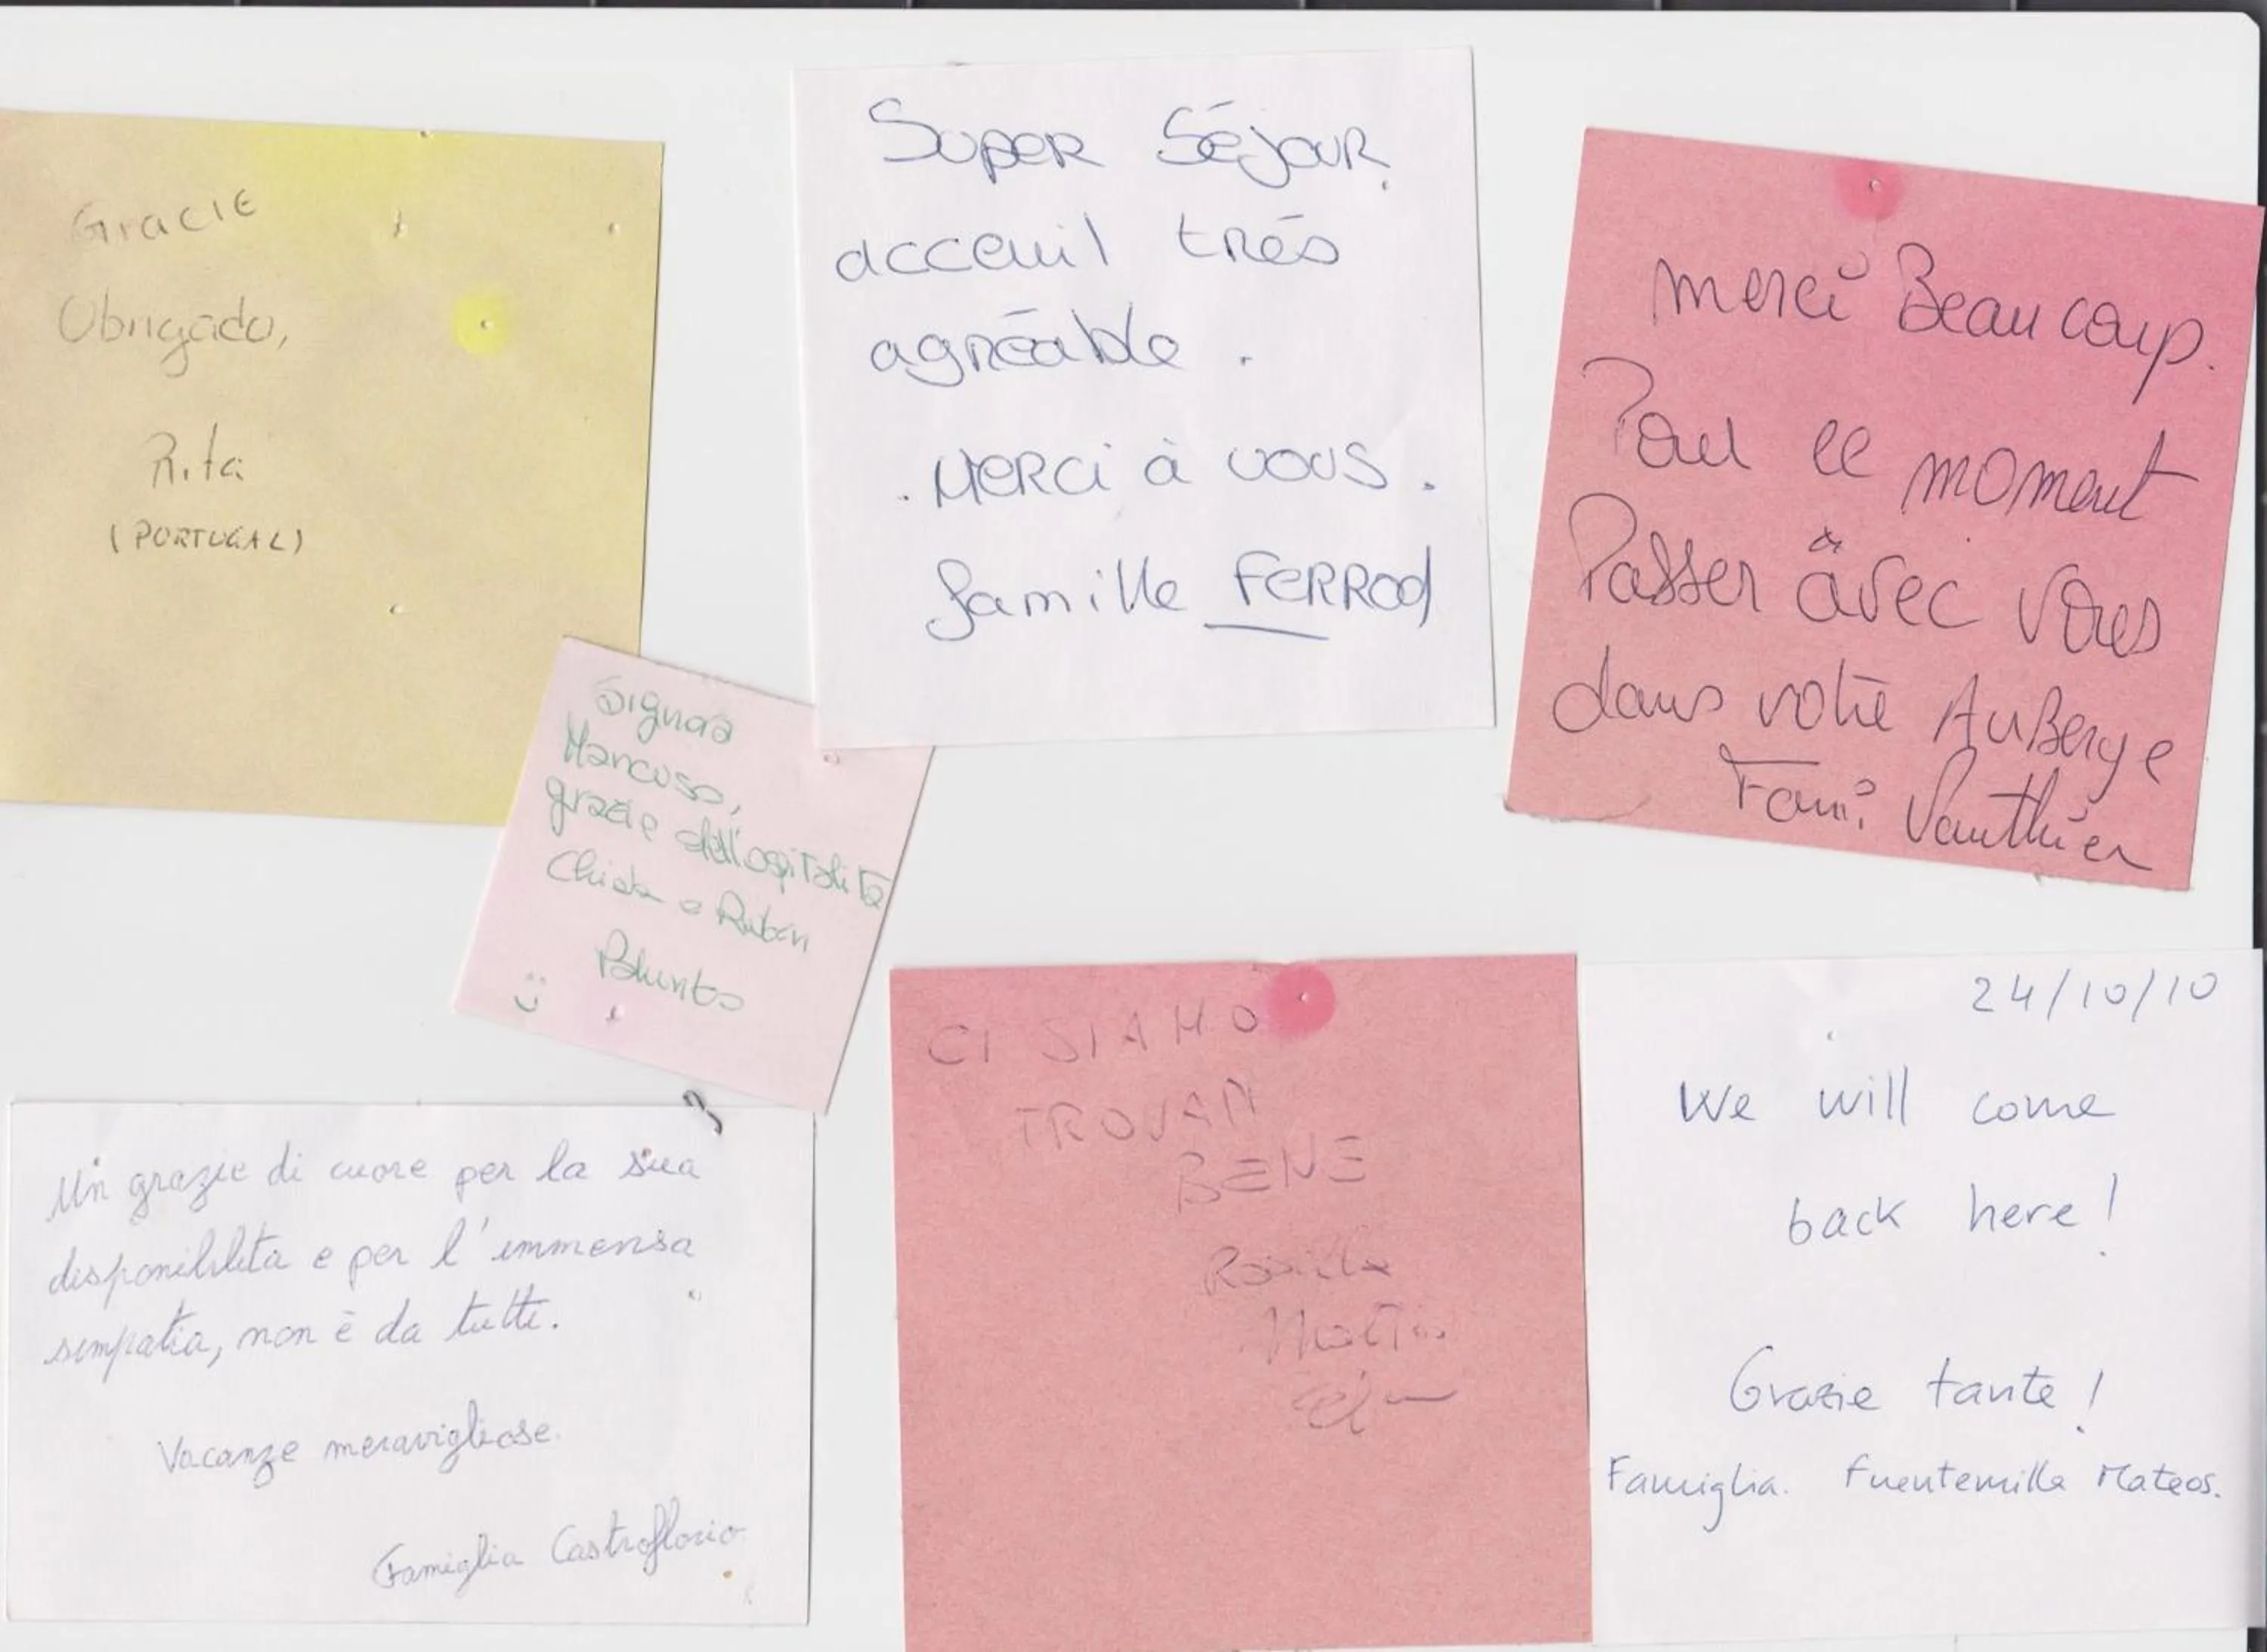 Gracie
Obrigado,
Rita
(PORTUGAL)
Super Séjour.
acceuil très
agréable.
. Merci à vous.
famille FERROD
merci Beaucoup.
Pour ce moment
Passer avec vous
dans votre AuBerge
Fami Vauthier
Mancuso,
grazie dell'ospitalità
e Ruben
CI SIAMO
TROVATI
BENE
24/10/10
We will come
back here!
Grazie tante!
Famiglia. Fuentemilla Mateos.
Un grazie di cuore per la sua
disponibilità e per l'immensa
simpatia, non è da tutti.
Vacanze meravigliose.
Famiglia Castroflorio